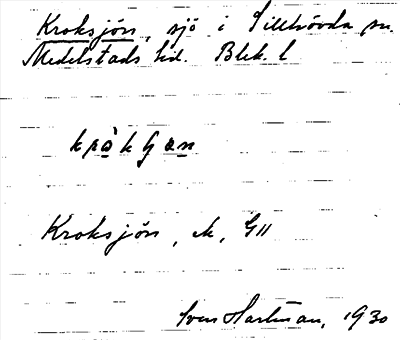 Kroksjön, sjö i Tillhövda sn.
Medelstads hd. Blek. l
Kroksjön, sk, G11
Sven Hartman, 1930